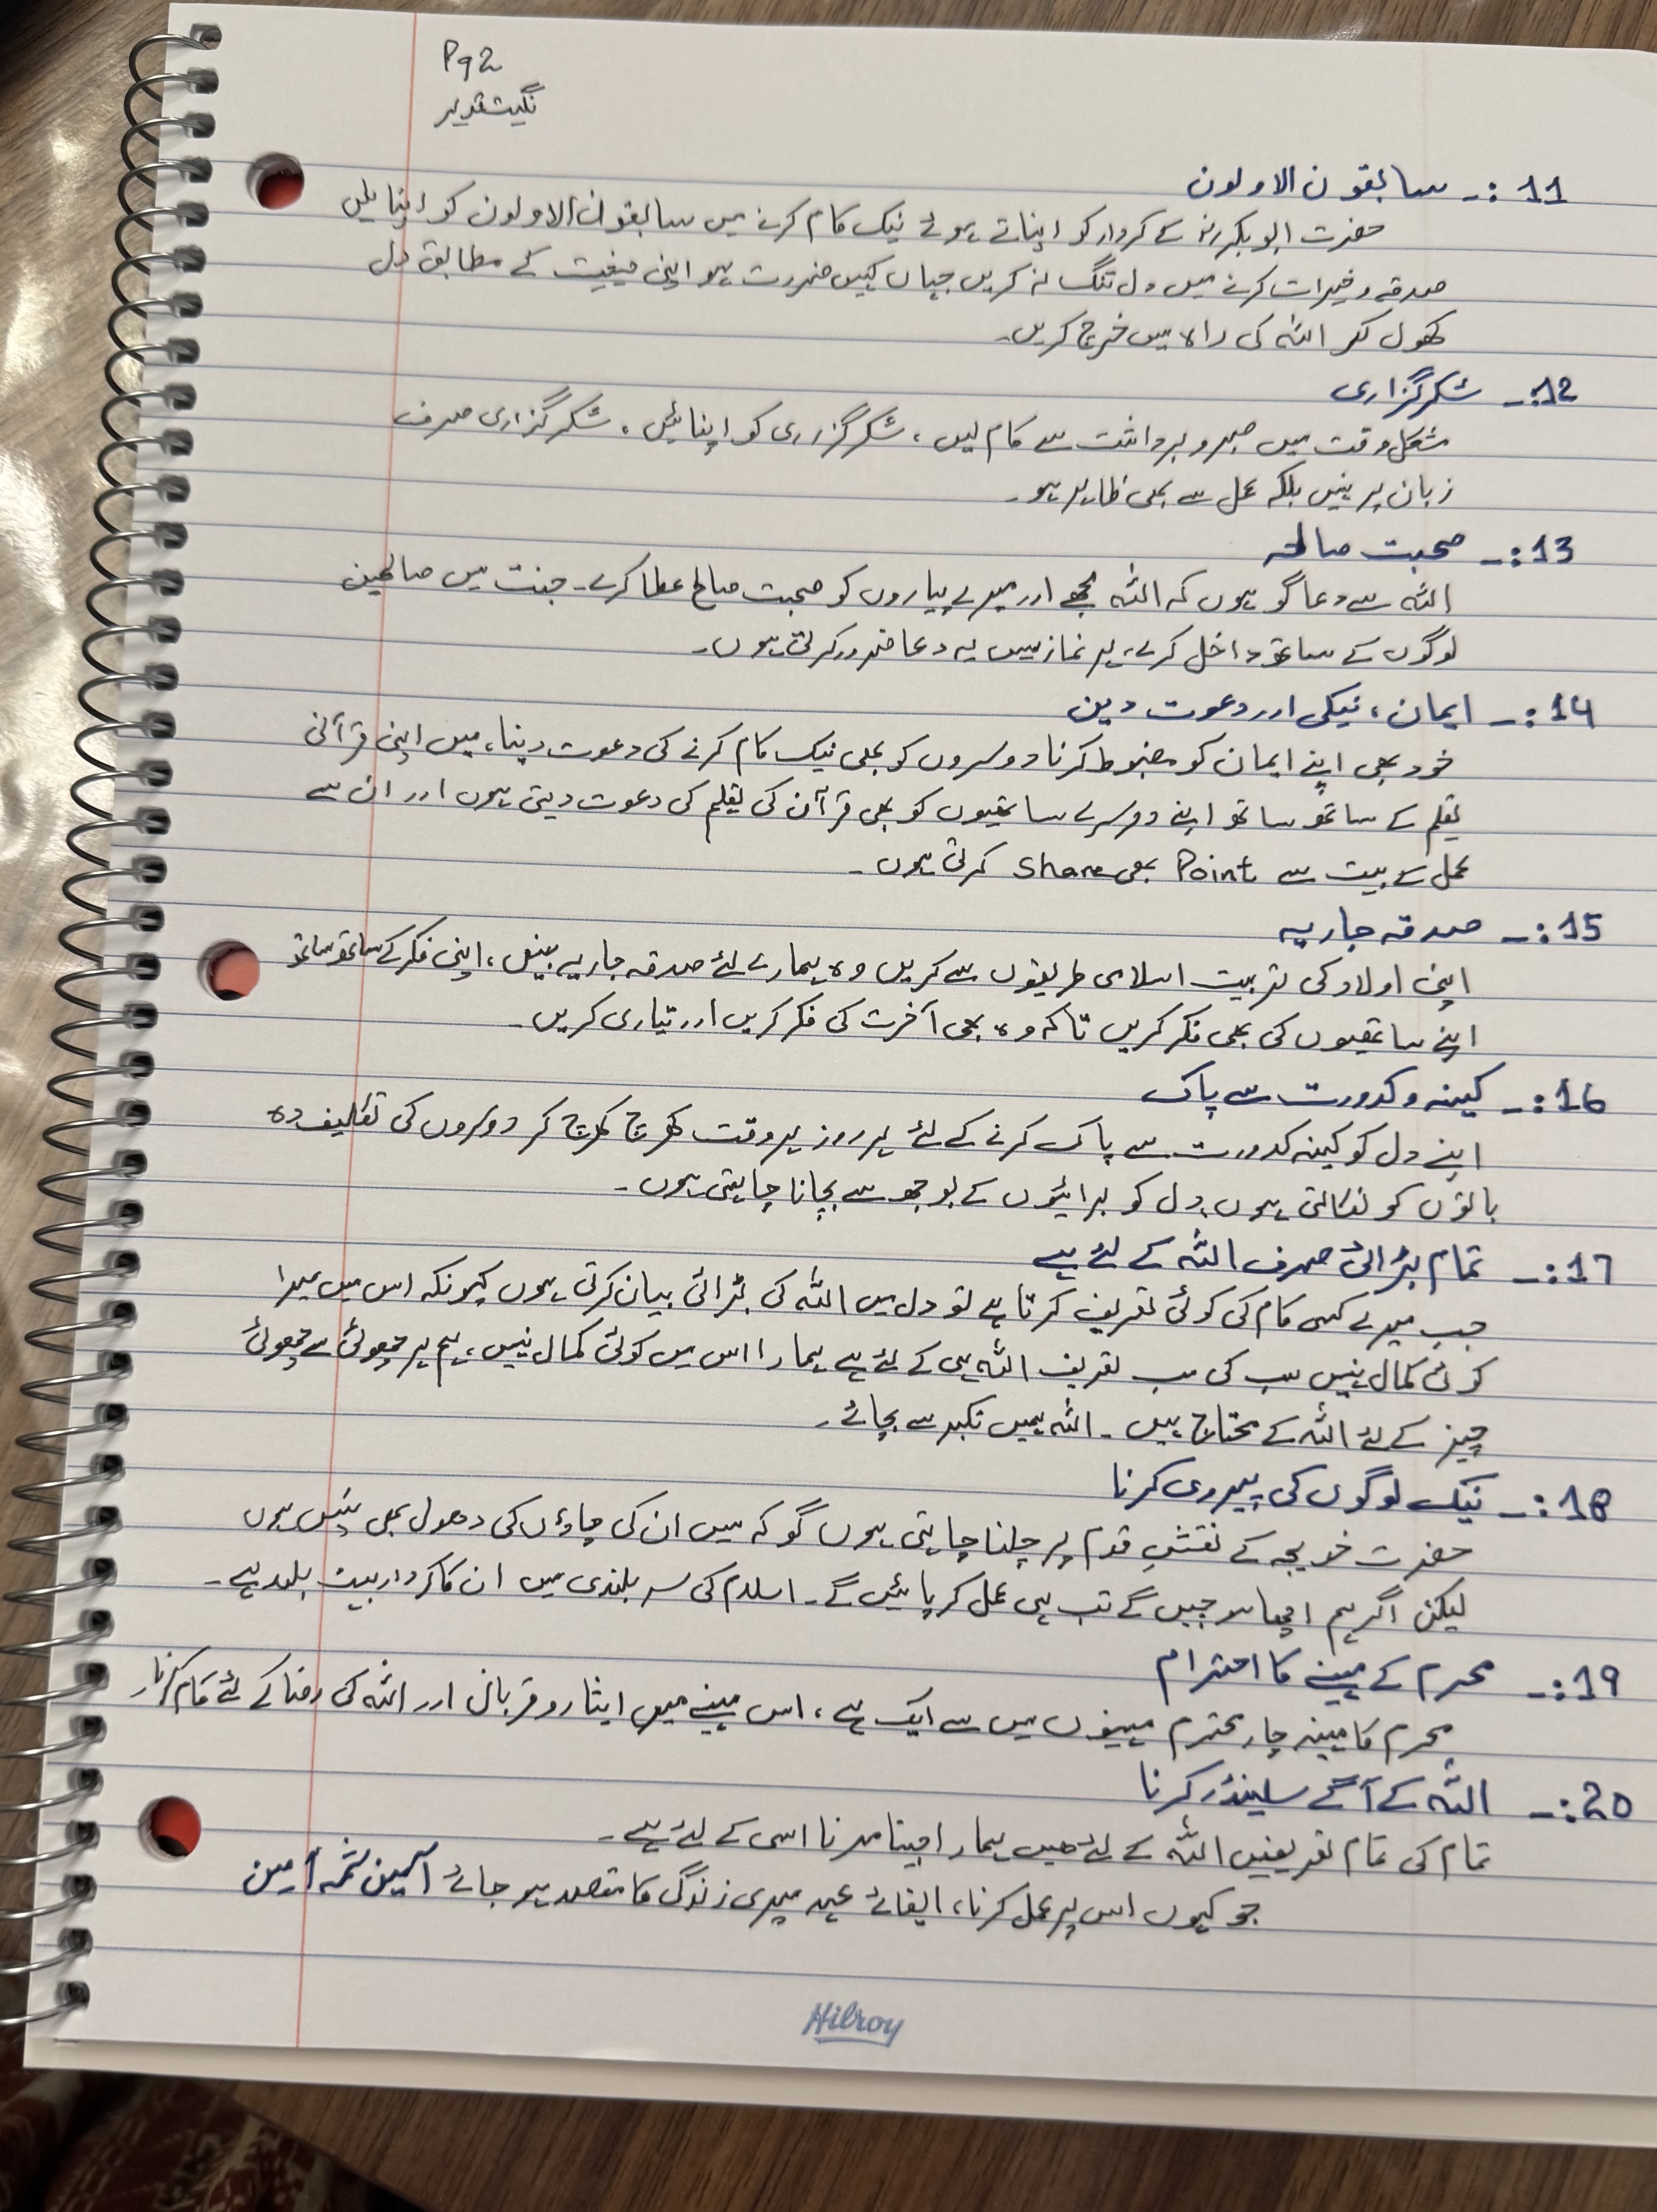 Pg 2
نگہت قدیر
11 :- سابقون الاولون
حضرت ابو بکررضہ کے کردار کو اپناتے ہوئے نیک کام کرنے میں سابقون الاولون کو اپنا ئیں
صدقہ و خیرات کرنے میں دل تنگ نہ کریں جہاں کہیں ضرورت ہو اپنی حیثیت کے مطابق دل
کھول کر اللہ کی راہ میں خرچ کریں۔
12:- شکر گزاری
مشکل وقت میں صبر و برداشت سے کام لیں ، شکر گزاری کو اپنائیں ، شکر گزاری صرف
زبان پر نہیں بلکہ عمل سے بھی ظاہر ہو۔
13 :- صحبت صالحہ
اللہ سے دعا گو ہوں کہ اللہ مجھے اور میرے پیاروں کو صحبت صالح عطا کرے۔ جنت میں صالحین
لوگوں کے ساتھ داخل کرے، ہر نماز میں یہ دعا ضرور کرتی ہوں۔
14 :- ایمان ، نیکی اور دعوت دین
خود بھی اپنے ایمان کو مضبوط کرنا دوسروں کو بھی نیک کام کرنے کی دعوت دینا، میں اپنی قرآنی
تعلیم کے ساتھ ساتھ اپنے دوسرے ساتھیوں کو بھی قرآن کی تعلیم کی دعوت دیتی ہوں اور ان سے
عمل کے بہت سے Point بھی Share کرتی ہوں۔
15 :- صدقہ جاریہ
اپنی اولاد کی تربیت اسلامی طریقوں سے کریں وہ ہمارے لئے صدقہ جاریہ بنیں ، اپنی فکر کے ساتھ ساتھ
اپنے ساتھیوں کی بھی فکر کریں تاکہ وہ بھی آخرت کی فکر کریں اور تیاری کریں۔
16 :- کینہ و کدورت سے پاک
اپنے دل کو کینہ کدورت سے پاک کرنے کے لئے ہر روز ہر وقت کھرچ کھرچ کر دوسروں کی تکالیف دہ
باتوں کو نکالتی ہوں دل کو برائیوں کے بوجھ سے بچانا چاہتی ہوں۔
17 :- تمام بڑائی صرف اللہ کے لئے ہے
جب میرے کسی کام کی کوئی تعریف کرتا ہے تو دل میں اللہ کی بڑائی بیان کرتی ہوں کیونکہ اس میں میرا
کوئی کمال نہیں سب کی سب تعریف اللہ ہی کے لئے ہے ہمارا اس میں کوئی کمال نہیں، ہم ہر چھوٹی سے چھوٹی
چیز کے لئے اللہ کے محتاج ہیں۔ اللہ ہمیں تکبر سے بچائے۔
18 :- نیک لوگوں کی پیروی کرنا
حضرت خدیجہ کے نقشِ قدم پر چلنا چاہتی ہوں گو کہ میں ان کی پاؤں کی دھول بھی نہیں ہوں
لیکن اگر ہم اچھا سوچیں گے تب ہی عمل کر پائیں گے۔ اسلام کی سر بلندی میں ان کا کردار بہت بلند ہے۔
19 :- محرم کے مہینے کا احترام
محرم کا مہینہ چار محترم مہینوں میں سے ایک ہے ، اس مہینے میں ایثار و قربانی اور اللہ کی رضا کے لئے کام کرنا
20 :- اللہ کے آگے سلینڈر کرنا
تمام کی تمام تعریفیں اللہ کے لئے ہیں ہمارا جینا مرنا اسی کے لئے ہے۔
جو کہوں اس پر عمل کرنا، ایفائے عہد میری زندگی کا مقصد ہو جائے آمین ثمہ آمین
Hilroy